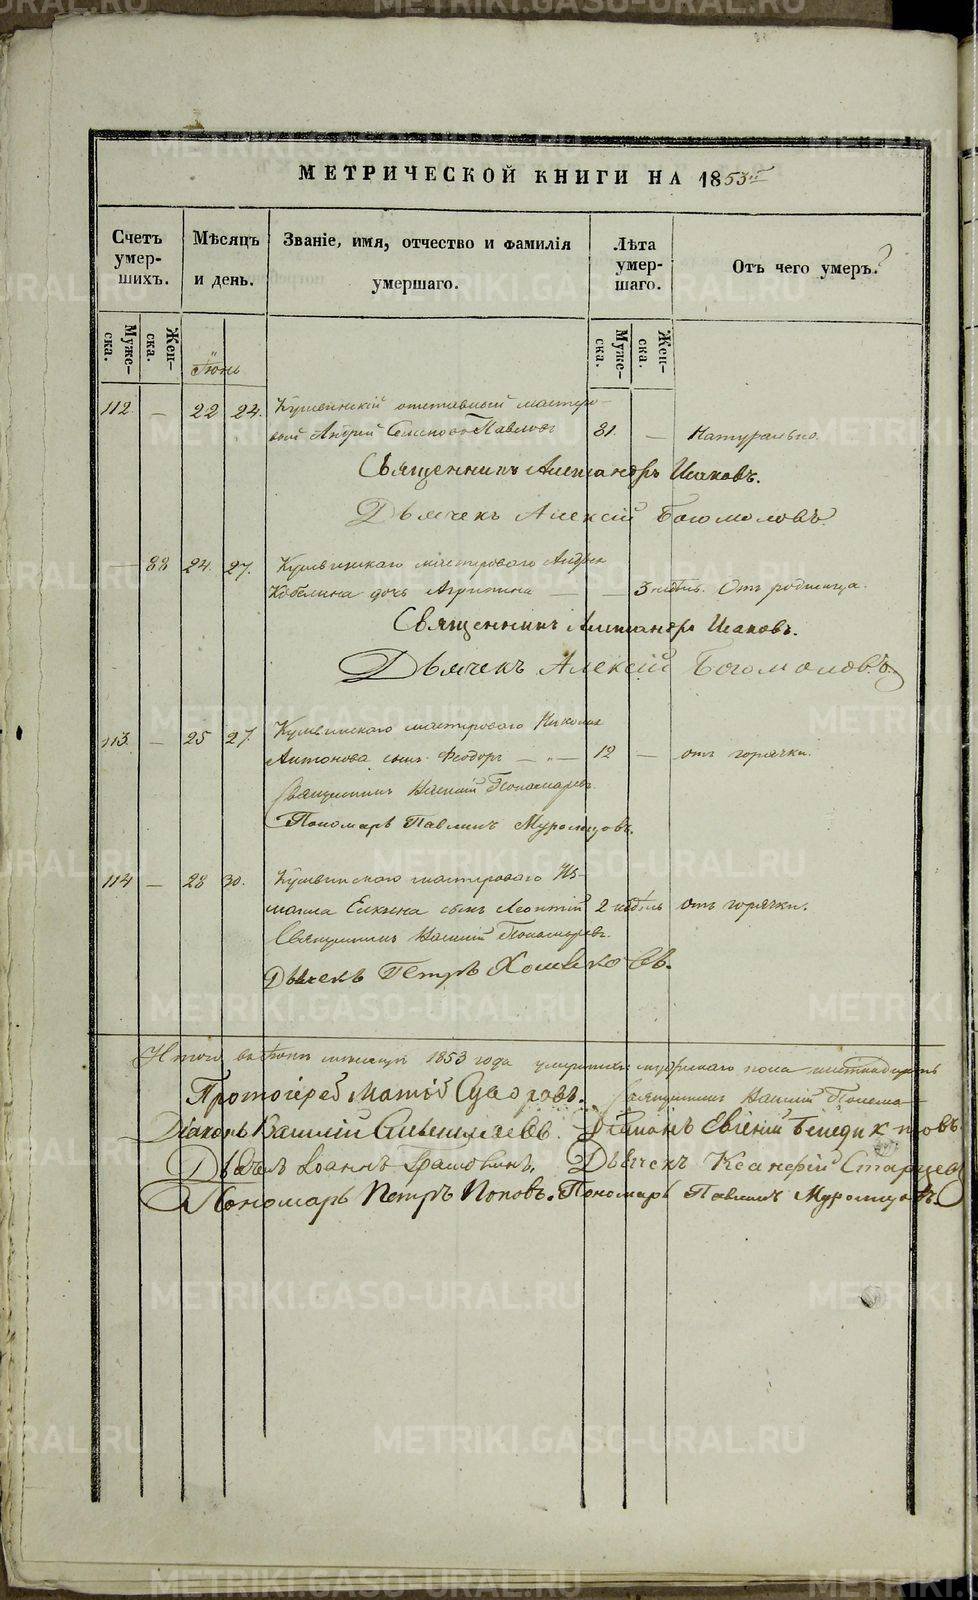 МЕТРИЧЕСКОЙ КНИГИ НА 1853й
Счетъ умер- шихъ.
Мѣсяцъ и день.
Званіе, имя, отчество и фамилія умершаго.
Лѣта умер- шаго.
Отъ чего умеръ.?
Муже- ска.
Жен- ска.
Муже- ска.
Жен- ска.
Іюнь
112 — 22 24. Кушвинскій отставной мастеро-
вой Андрей Семеновъ Павловъ 81. — Натурально.
Священникъ Александръ Исаковъ.
Дьячекъ Алексій Богомоловъ
— 88 24. 27. Кушвинскаго мастероваго Андрея
дочь Агрипина — — 3 недѣль. Отъ родимца.
Священникъ Александръ Исаковъ.
Дьячекъ Алексій Богомоловъ.
113. — 25 27. Кушвинскаго мастероваго Николая
Антонова сынъ Феодоръ — „ — 12 — отъ горячки.
Священникъ Василій Пономаревъ
Пономарь Павлинъ Муромцовъ.
114 — 28 30. Кушвинскаго мастероваго Из-
маила Елкина сынъ Леонтій 2 недѣль отъ горячки.
Священникъ Василій Пономаревъ.
Дьячекъ Петръ Хомяковъ.
Итого въ Іюнѣ мѣсяцѣ 1853 года умершихъ мужескаго пола
Протоіерей Матѳій Суворовъ. Священникъ Василій Понома-
Діаконъ Василій Діаконъ Евгеній Бенедиктовъ
Дьячекъ Іоаннъ Дьячекъ Ксанфій Старцев
Пономарь Петръ Поповъ. Пономарь Павлинъ Муромцовъ.
METRIKI.GASO-URAL.RU